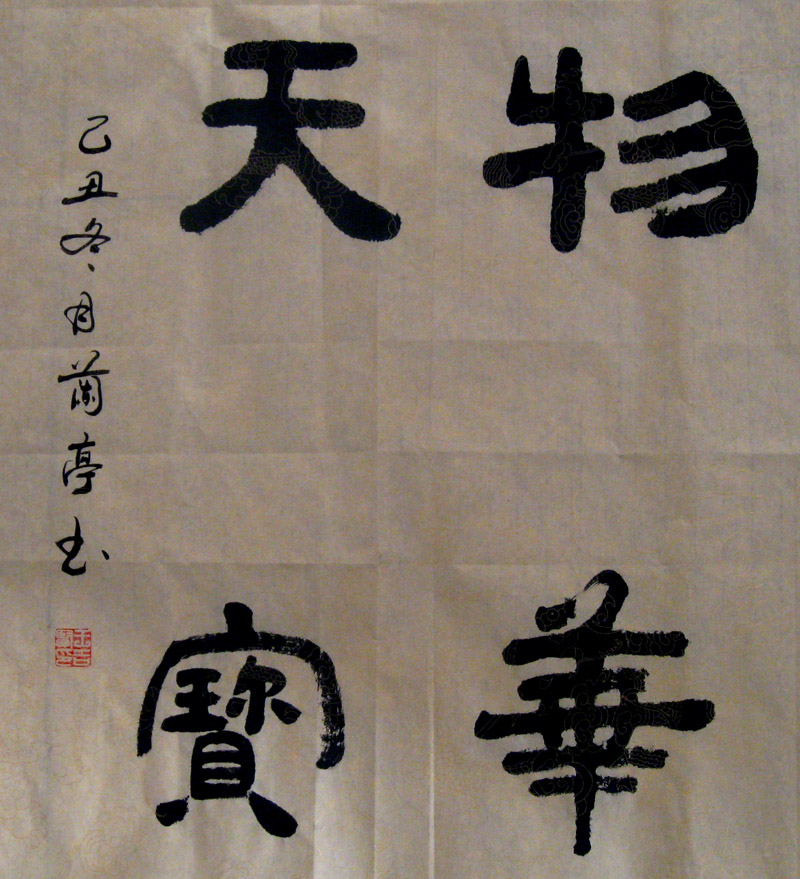 物華
天寶
己丑冬月蘭亭书